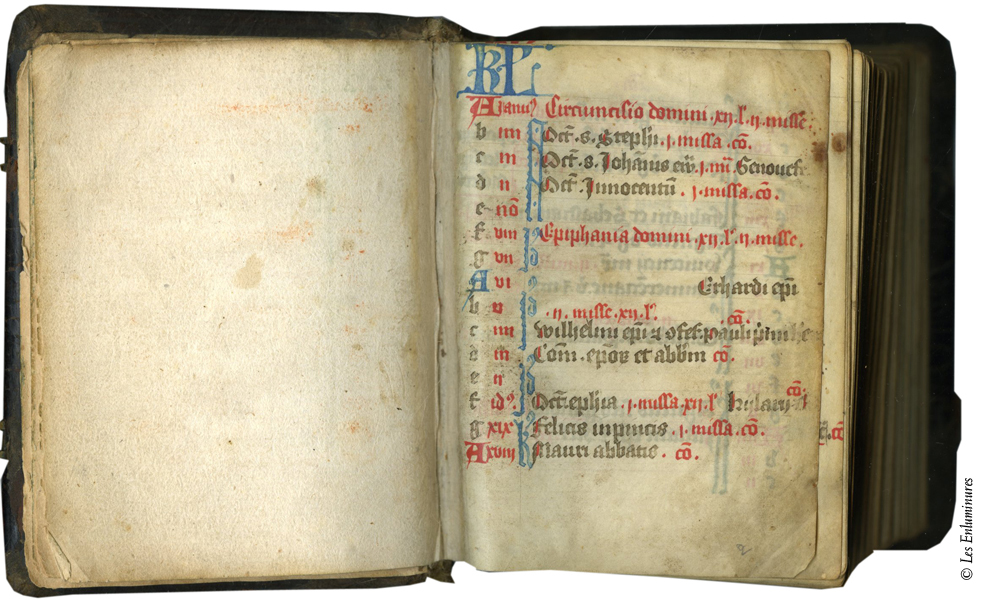 KL
A Ianuꝰ Circumcisio domini .xij. l'. ij. misse.
b iiii Oct̄. s. Steph̄i . j . missa . cō.
c iii Oct̄. s. Joh̄annis j. Genouefe
d ii Oct̄. Innocentū . j . missa . cō.
e nō
f viii Epiphania domini .xij. l'. ij. misse.
g vii
A vi Erhardi ep̄i
b v . ij . misse . xij . l'. cō.
c iiii Wilhelmi ep̄i pauli
d iii Com̄. et abb̄m cō.
e ii
f idꝰ. Oct. ep̄hia . j . missa . xij . l' hilarij cō.
g xix Felicis inpincis . j . missa . cō. cō
A xviii Mauri abbatis . cō.
© Les Enluminures